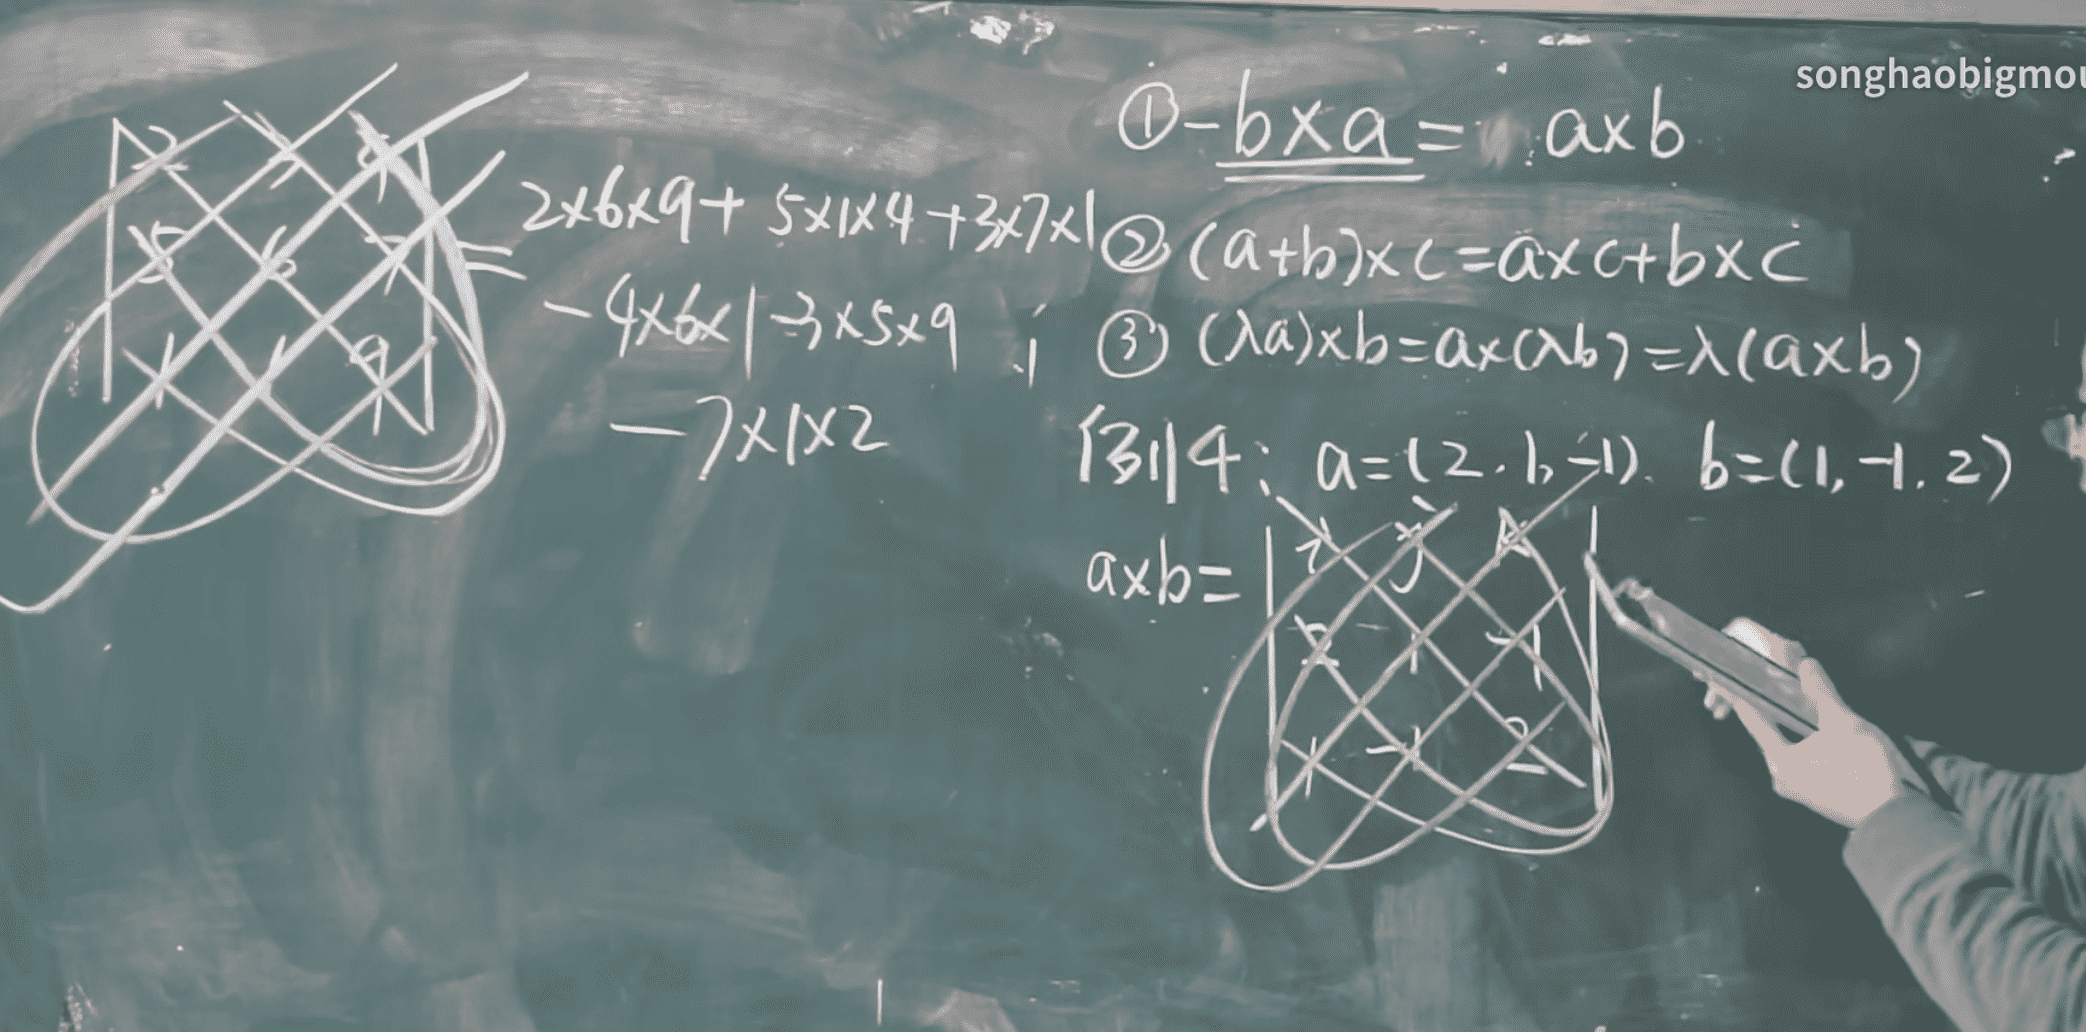 songhaobigmou
2 3 4
5 6 7
1 1 9
=
2×6×9+ 5×1×4+3×7×1
-4×6×1-3×5×9
-7×1×2
① -b×a= a×b
② (a+b)×c=a×c+b×c
③ (λa)×b=a×(λb)=λ(a×b)
例4: a=(2.1,-1). b=(1,-1.2)
a×b=
i j k
2 1 -1
1 -1 2